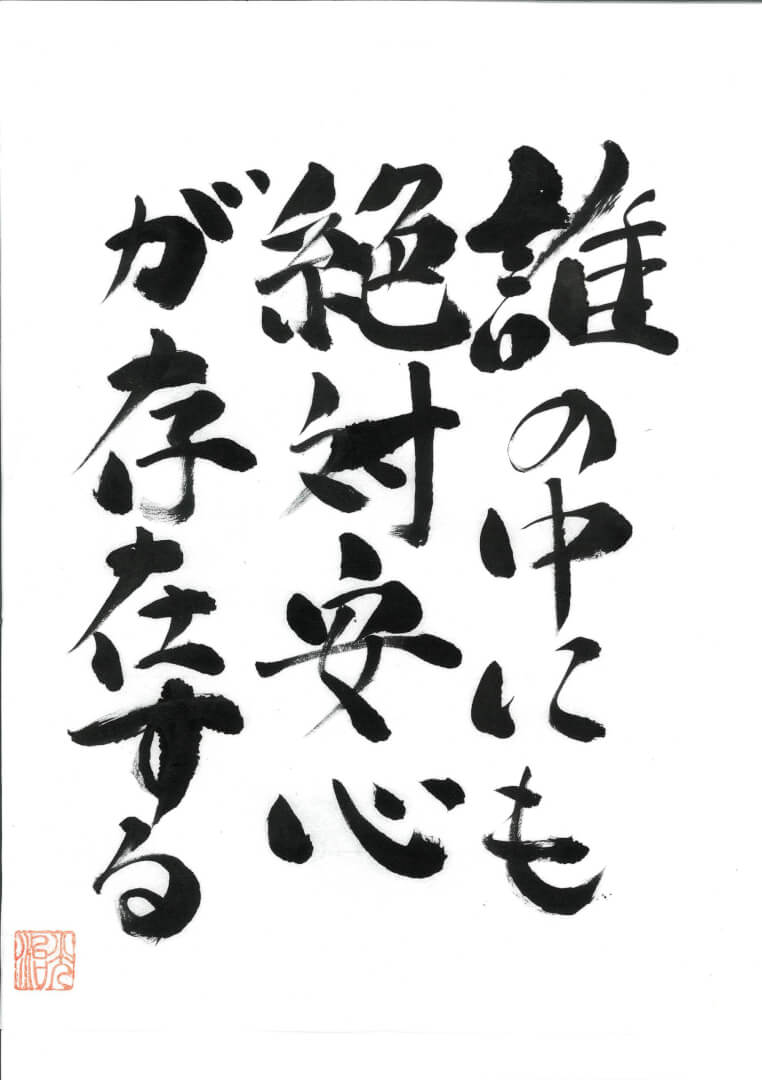 誰の中にも
絶対安心
が存在する